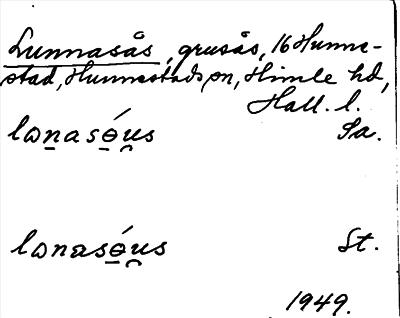 Lunnasås, grusås, 16 Hunne-
stad, Hunnestads sn, Himle hd,
Hall. l.
lωnasə́us Sa.
lωnasə́us St.
1949.